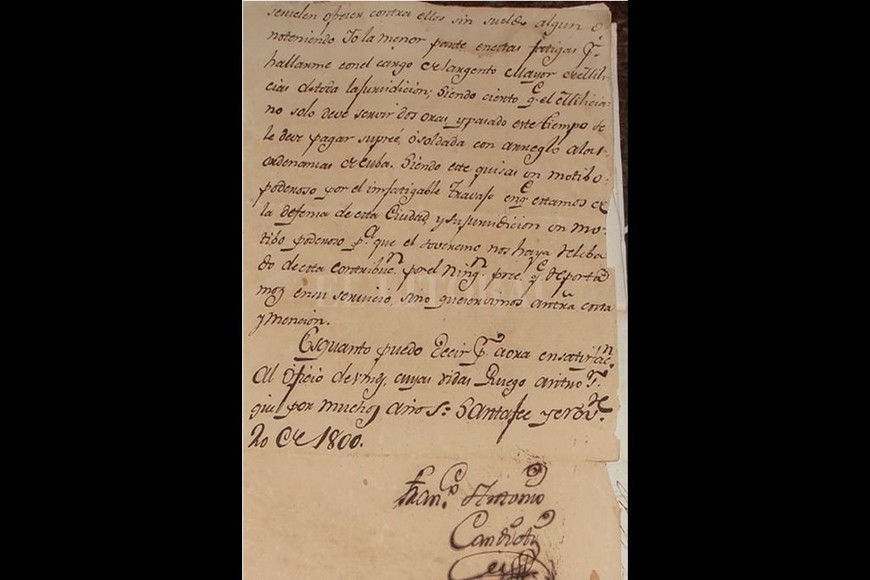 suelen ofrecer contra ellos sin sueldo algun o
noteniendo Yo la menor parte enestas fatigas pr.
hallarme conel cargo de Sargento Mayor de Mili-
cias detoda lajurisdicion; Siendo cierto qe. el Milicia-
no solo deve servir dos oras, ypasado este tiempo se
le deve pagar supreé, ó soldada con arreglo alas
ordenansas de cuba. Siendo este quisas un motibo
poderoso por el imfatigable Travajo enqe. estamos de
la defensa de esta Ciudad, y sujurisdicion un mo-
tibo poderoso pa. que el soverano nos haya releba
do de esta contribun. por el ningn. pre. qe. reporta
mos ensu servicio, sino queconvinos contra costa
ymencion.
Esquanto puedo Decir pr. aora ensatisfacn.
Al Oficio de vmd, cuyas vidas Ruego a ntro Sr.
gue por muchos años. Santafee y
20 de 1800.
Franco. Antonio
Candioti